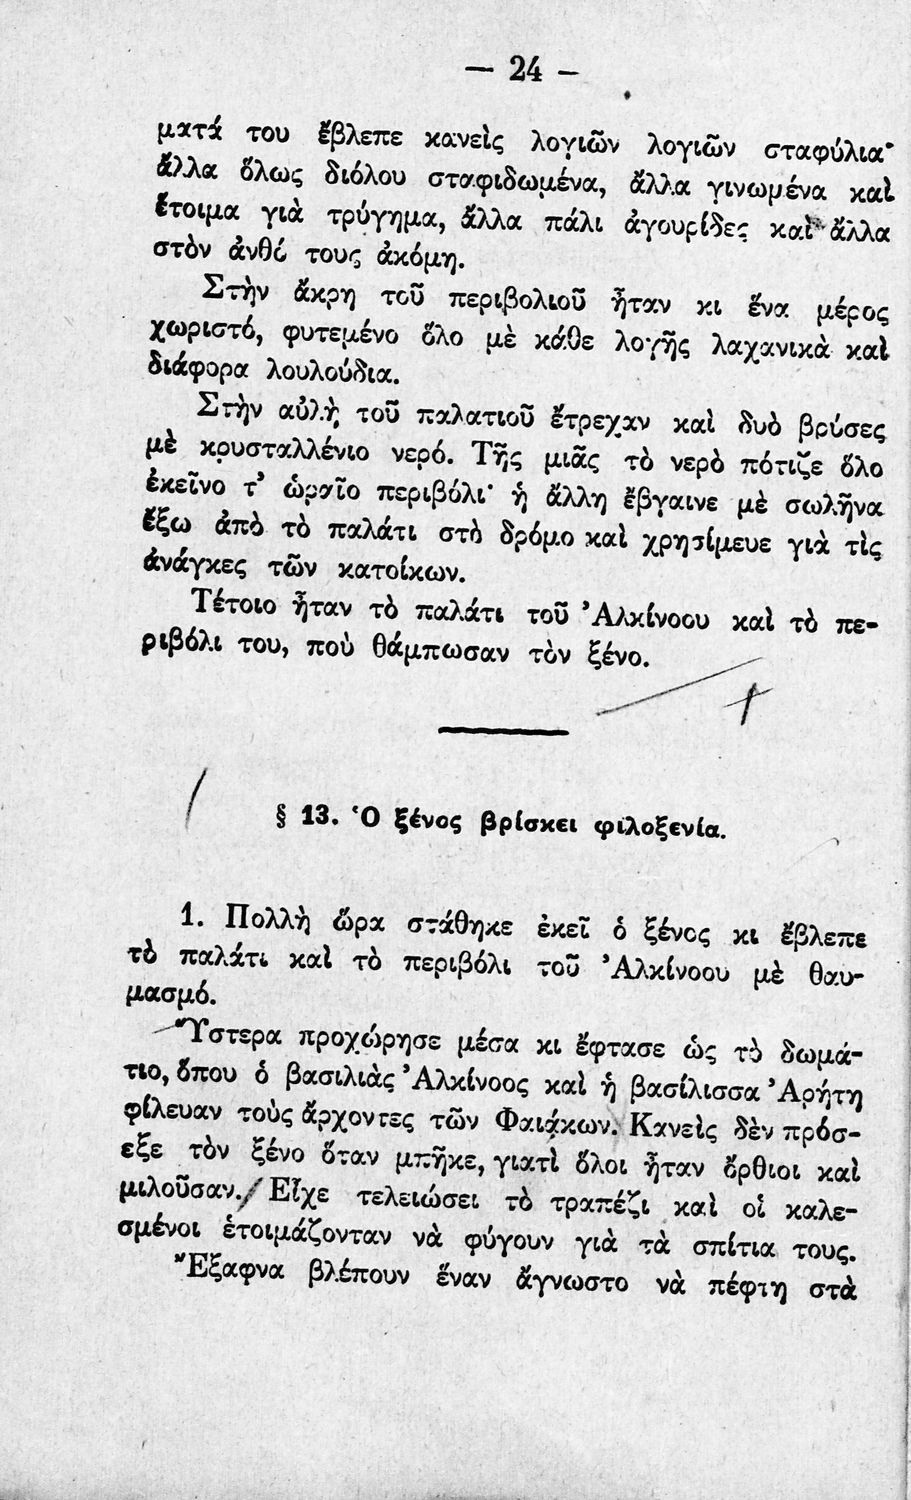 — 24 —
ματά του ἔβλεπε κανεὶς λογιῶν λογιῶν σταφύλια·
ἄλλα ὅλως διόλου σταφιδωμένα, ἄλλα γινωμένα καὶ
ἕτοιμα γιὰ τρύγημα, ἄλλα πάλι ἀγουρίδες καὶ ἄλλα
στὸν ἀνθό τους ἀκόμη.
Στὴν ἄκρη τοῦ περιβολιοῦ ἦταν κι ἕνα μέρος
χωριστό, φυτεμένο ὅλο μὲ κάθε λογῆς λαχανικὰ καὶ
διάφορα λουλούδια.
Στὴν αὐλὴ τοῦ παλατιοῦ ἔτρεχαν καὶ δυὸ βρύσες
μὲ κρυσταλλένιο νερό. Τῆς μιᾶς τὸ νερὸ πότιζε ὅλο
ἐκεῖνο τ' ὡραῖο περιβόλι· ἡ ἄλλη ἔβγαινε μὲ σωλῆνα
ἔξω ἀπὸ τὸ παλάτι στὸ δρόμο καὶ χρησίμευε γιὰ τὶς
ἀνάγκες τῶν κατοίκων.
Τέτοιο ἦταν τὸ παλάτι τοῦ Ἀλκίνοου καὶ τὸ πε-
ριβόλι του, ποὺ θάμπωσαν τὸν ξένο.
§ 13. Ὁ ξένος βρίσκει φιλοξενία.
1. Πολλὴ ὥρα στάθηκε ἐκεῖ ὁ ξένος κι ἔβλεπε
τὸ παλάτι καὶ τὸ περιβόλι τοῦ Ἀλκίνοου μὲ θαυ-
μασμό.
Ὕστερα προχώρησε μέσα κι ἔφτασε ὡς τὸ δωμά-
τιο, ὅπου ὁ βασιλιὰς Ἀλκίνοος καὶ ἡ βασίλισσα Ἀρήτη
φίλευαν τοὺς ἄρχοντες τῶν Φαιάκων. Κανεὶς δὲν πρόσ-
εξε τὸν ξένο ὅταν μπῆκε, γιατὶ ὅλοι ἦταν ὄρθιοι καὶ
μιλοῦσαν. Εἶχε τελειώσει τὸ τραπέζι καὶ οἱ καλε-
σμένοι ἑτοιμάζονταν νὰ φύγουν γιὰ τὰ σπίτια τους.
Ἔξαφνα βλέπουν ἕναν ἄγνωστο νὰ πέφτη στὰ